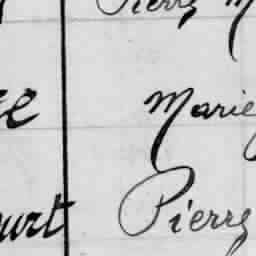 Pierre M
se Marie
urt Pierre